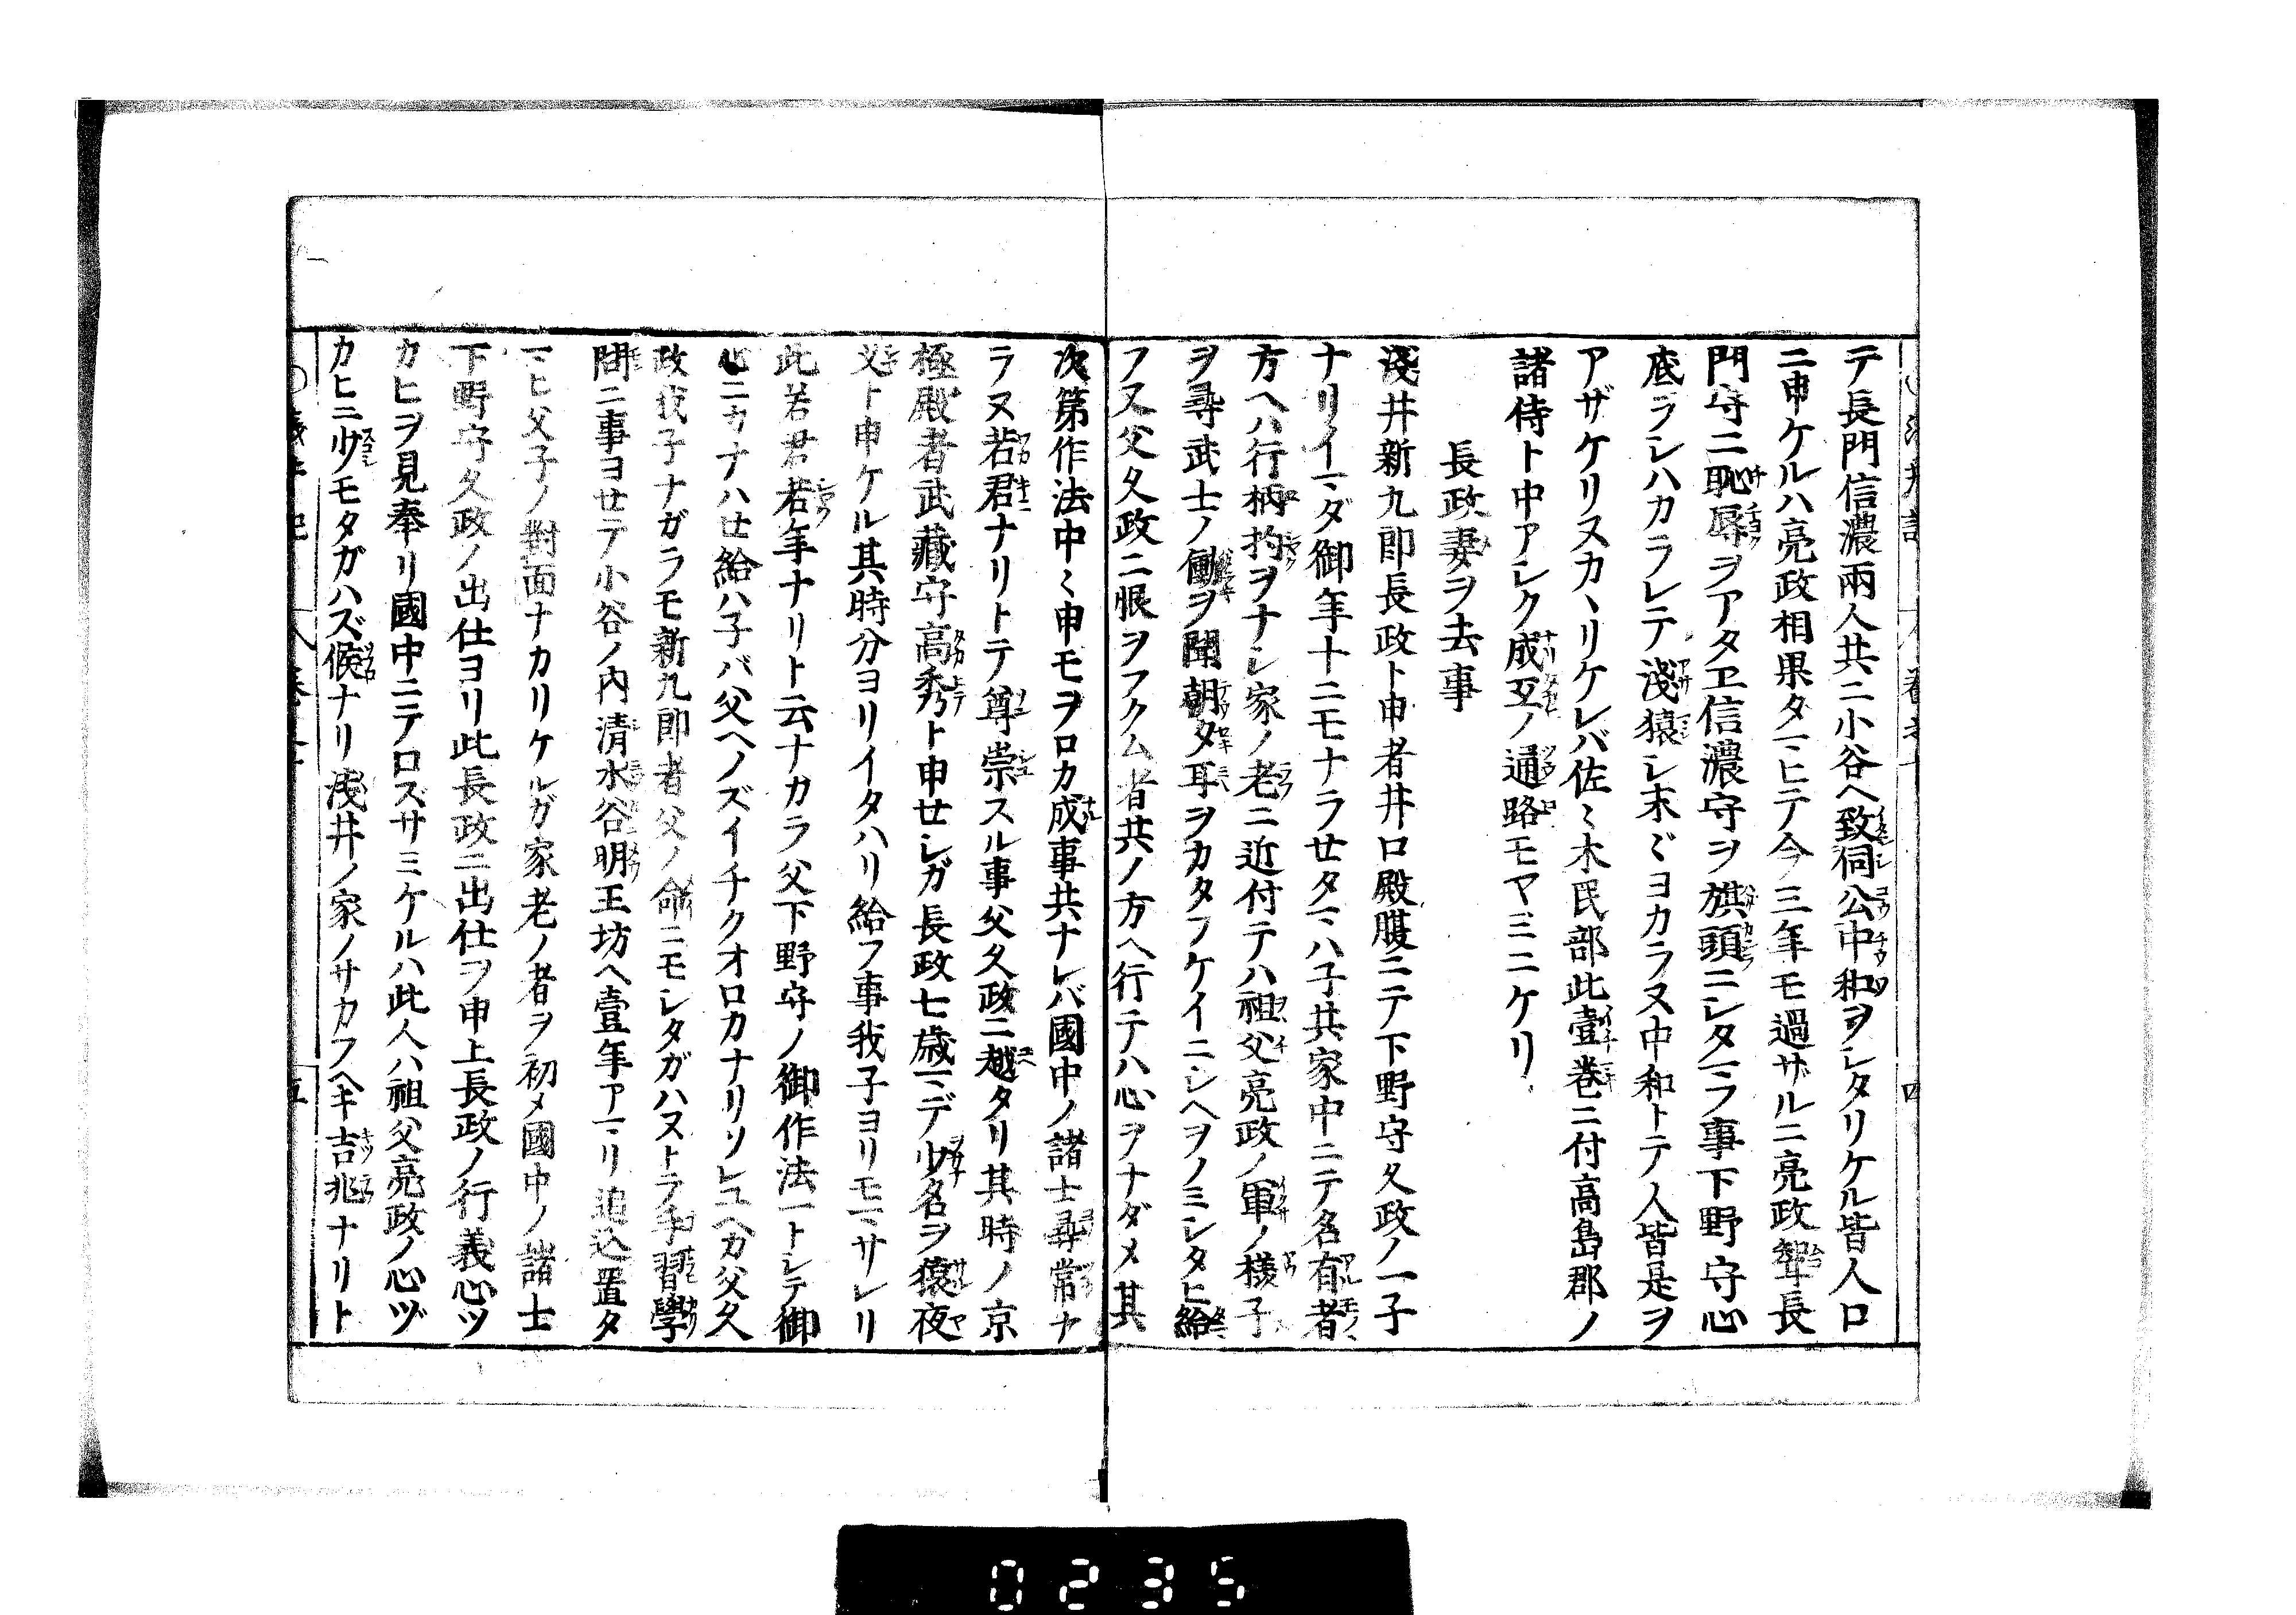 テ長門信濃兩人共ニ小谷ヘ致伺公中和ヲシタリケル皆人口
ニ申ケルハ亮政相果タマヒテ今三年モ過サルニ亮政聟長
門守ニ恥辱ヲアタヱ信濃守ヲ旗頭ニシタマフ事下野守心
底ヲシハカラレテ淺猿シ末々ヨカラヌ中和トテ人皆是ヲ
アザケリヌカヽリケレバ佐々木民部此壹巻ニ付高島郡ノ
諸侍ト中アシク成互ノ通路モヤミニケリ
長政妻ヲ去事
淺井新九郎長政ト申者井口殿腹ニテ下野守久政ノ一子
ナリイマダ御年十ニモナラセタマハ子共家中ニテ名有者
方ヘハ行柄抅ヲナシ家ノ老ニ近付テハ祖父亮政ノ軍ノ樣子
ヲ尋武士ノ働ヲ聞朝夕耳ヲカタフケイニシヘヲノミシタヒ給
フ又父久政ニ恨ヲフクム者共ノ方ヘ行テハ心ヲナダメ其
次第作法中々申モヲロカ成事共ナレバ國中ノ諸士尋常ナ
ラヌ若君ナリトテ尊崇スル事父久政ニ越タリ其時ノ京
極殿者武藏守高秀ト申セシガ長政七歳マデ少名ヲ猿夜
叉ト申ケル其時分ヨリイタハリ給フ事我子ヨリモマサレリ
此若君若年ナリト云ナカラ父下野守ノ御作法一トシテ御
心ニカナハセ給ハ子バ父ヘノズイチクオロカナリソレユヘカ父久
政我子ナガラモ新九郎者父ノ命ニモシタガハヌトテ手習學
問ニ事ヨセテ小谷ノ內清水谷明王坊ヘ壹年アマリ追込置タ
マヒ父子ノ對面ナカリケルガ家老ノ者ヲ初メ國中ノ諸士
下野守久政ノ出仕ヨリ此長政ニ出仕ヲ申上長政ノ行義心ツ
カヒヲ見奉リ國中ニテロズサミケルハ此人ハ祖父亮政ノ心ヅ
カヒニ少モタガハズ候ナリ淺井ノ家ノサカフヘキ吉兆ナリト